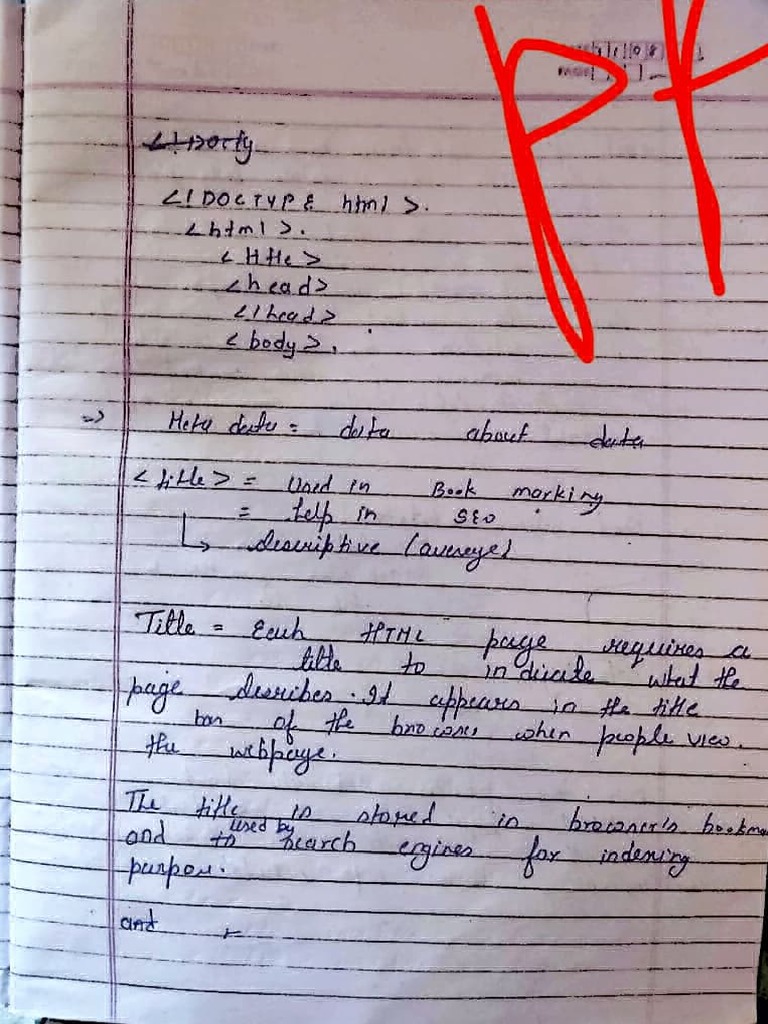 PF
<!Docty
<!DOCTYPE html>.
<html>.
<title>
<head>
</head>
<body>.
=> Meta data = data about data
<title> = Used in Book marking
= help in SEO
↳ descriptive (average)
Title = Each HTML page requires a
title to indicate what the
page describes. It appears in the title
bar of the browser, when people view.
the webpage.
The title is stored in browser's bookma
and to used by search engines for indexing
purpose.
and